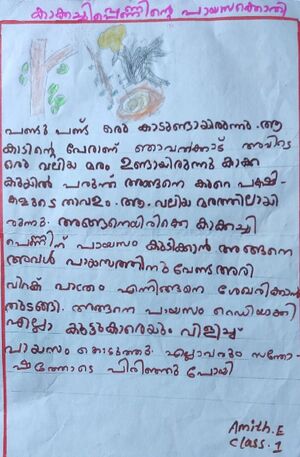 കാക്കച്ചിപ്പെണ്ണിന്റെ പായസക്കൊതി
പണ്ടു പണ്ട് ഒരു കാടുണ്ടായിരുന്നു. ആ
കാടിന്റെ പേരാണ് ഞാവൽക്കാട് അവിടെ
ഒരു വലിയ മരം ഉണ്ടായിരുന്നു കാക്ക
കുയിൽ പരുന്ത് അങ്ങനെ കുറെ പക്ഷി-
കളുടെ താവളം. ആ. വലിയ മരത്തിലായി
രുന്നു. അങ്ങനെയിരിക്കെ കാക്കച്ചി
പെണ്ണിന് പായസം കുടിക്കാൻ അങ്ങനെ
അവൾ പായസത്തിനു വേണ്ട അരി
വിറക് പാത്രം എന്നിങ്ങനെ ശേഖരിക്കാൻ
തുടങ്ങി. അങ്ങനെ പായസം റെഡിയാക്കി
എല്ലാ കൂട്ടുകാരെയും വിളിച്ച്
പായസം കൊടുത്തു. എല്ലാവരും സന്തോ-
ഷത്തോടെ പിരിഞ്ഞു പോയി
Amith.E
class.1